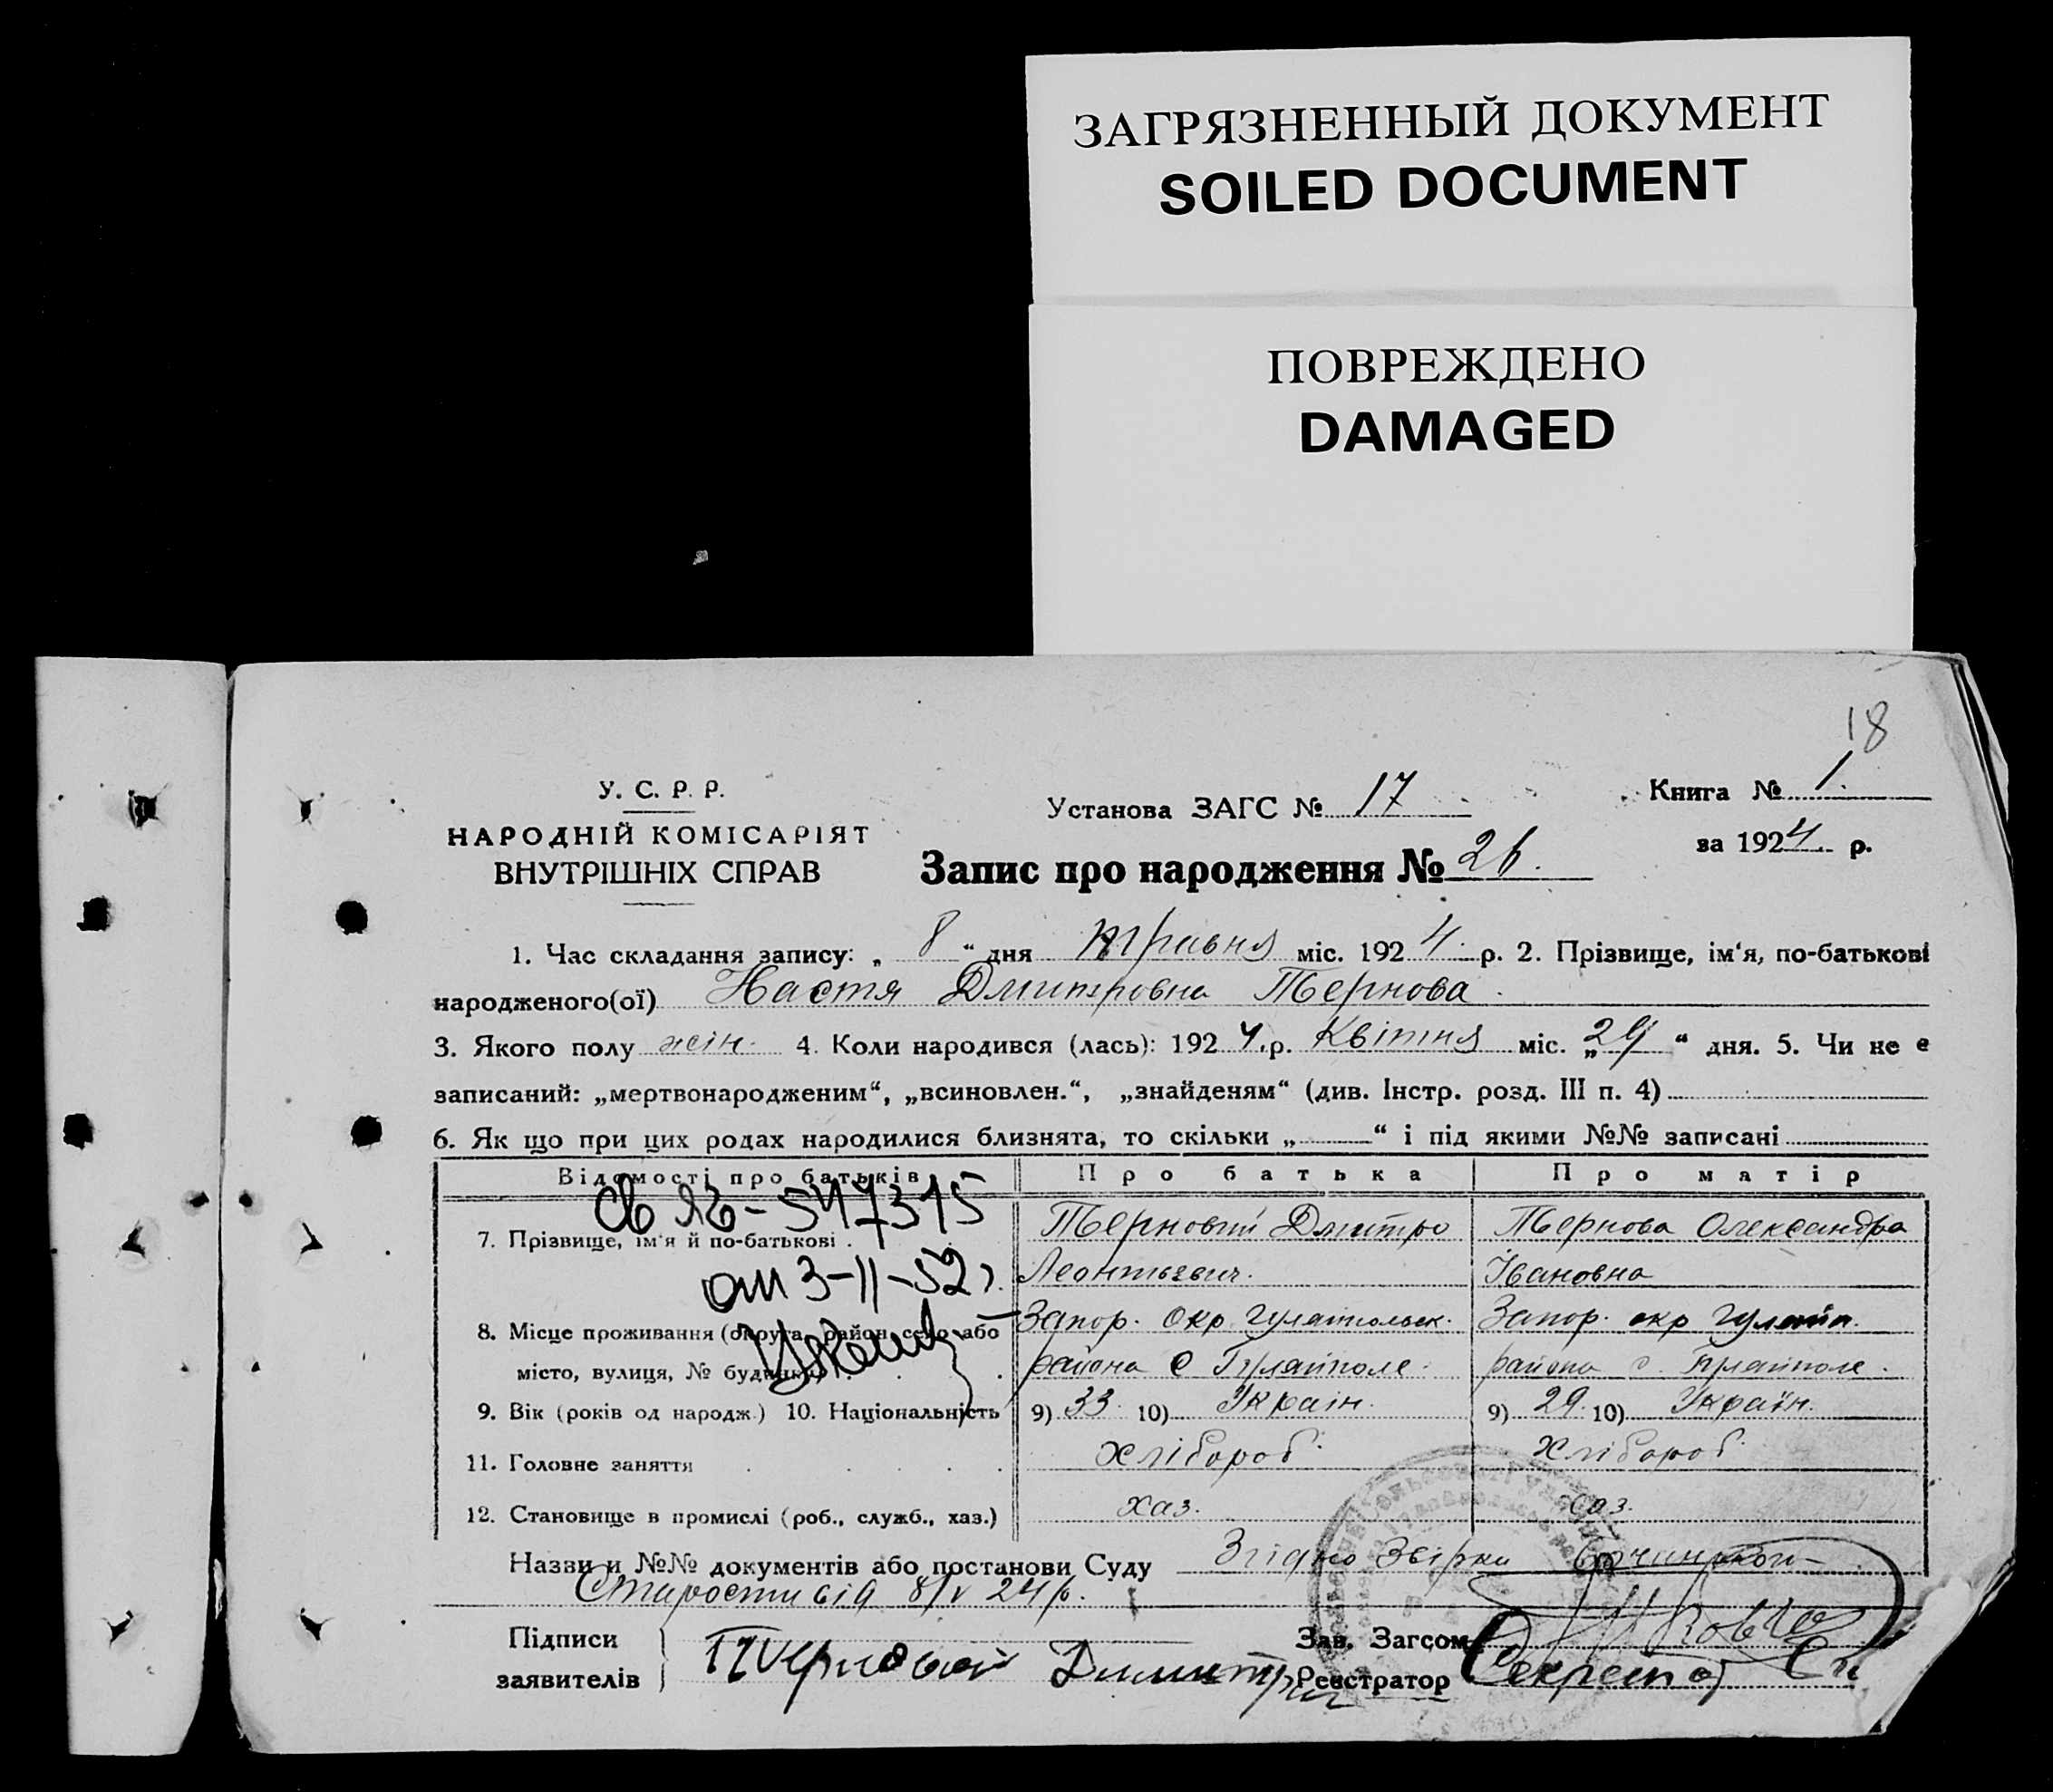 ЗАГРЯЗНЕННЫЙ ДОКУМЕНТ
SOILED DOCUMENT
ПОВРЕЖДЕНО
DAMAGED
18
У. С. Р. Р.
НАРОДНІЙ КОМІСАРІЯТ
ВНУТРІШНІХ СПРАВ
Установа ЗАГС № 17
Книга № 1.
за 1924 р.
Запис про народження № 26.
1. Час складання запису: „ 8 “ дня травня міс. 1924. р. 2. Прізвище, ім‘я, по-батькові
народженого(ої) Настя Дмитровна Тернова.
3. Якого полу жін. 4. Коли народився (лась): 1924.р. Квітня міс. „29“ дня. 5. Чи не є
записаний: „мертвонародженим“, „всиновлен.“, „знайденям“ (див. Інстр. розд. III п. 4)
6. Як що при цих родах народилися близнята, то скільки „ “ і під якими №№ записані
Відомості про батьків Про батька Про матір
Св ЯБ-547315
7. Прізвище, ім‘я й по-батькові . Терновий Дмитро Тернова Олександра
от 3-II-52 г. Леонтьевич. Івановна
8. Місце проживання (округа, район, село або Запор. Окр. Гуляйпольск. Запор. окр Гуляйп.
місто, вулиця, № будинку) района с Гуляйполе. района с. Гуляйполе.
9. Вік (років од народж.) 10. Національність 9) 33 10) Україн. 9) 29. 10) Україн.
11. Головне заняття хлібороб. хлібороб.
12. Становище в промислі (роб., служб., хаз.) хаз. хаз.
Назви и №№ документів або постанови Суду Згідно Звірки
Старости від 8/V 24 р.
Підписи
заявителів Терновой Димитрий
Зав. Загсом
Реєстратор Секретар